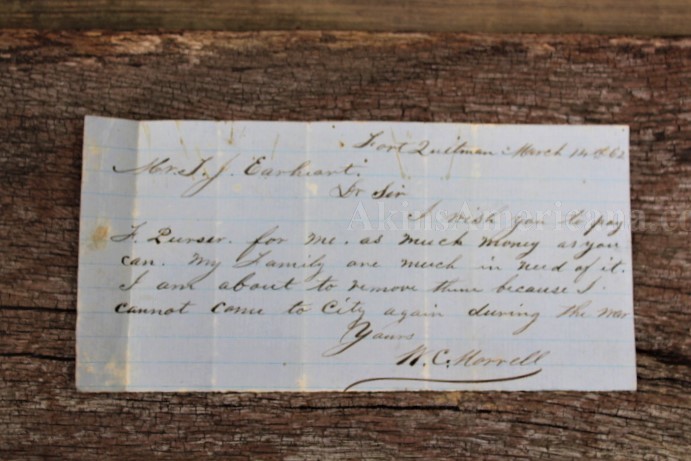 Fort Quitman March 14th 62
Mr. T. J. Earheart.
Dr Sir
I wish you to pay
F. Purser. for me. as much money as you
can. My Family are much in need of it.
I am about to remove them because I
cannot come to City again during the war
Yours
W. C. Morrell
AkinsAmericana